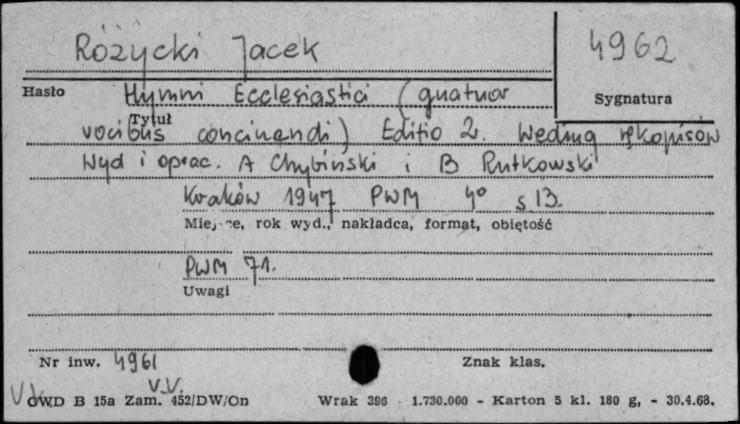 Różycki Jacek
4962
Hasło
Hymni Ecclesiastici (quatuor
Sygnatura
Tytuł
vocibus concinendi) Editio 2. Według rękopisów
Wyd i oprac. A Chybiński i B Rutkowski
Kraków 1947 PWM 4° s 13.
Miejsce, rok wyd., nakładca, format, objętość
PWM 71.
Uwagi
Nr inw. 4961
Znak klas.
V.V.
OWD B 15a Zam. 452/DW/On Wrak 396 - 1.730.000 - Karton 5 kl. 180 g, - 30.4.68.